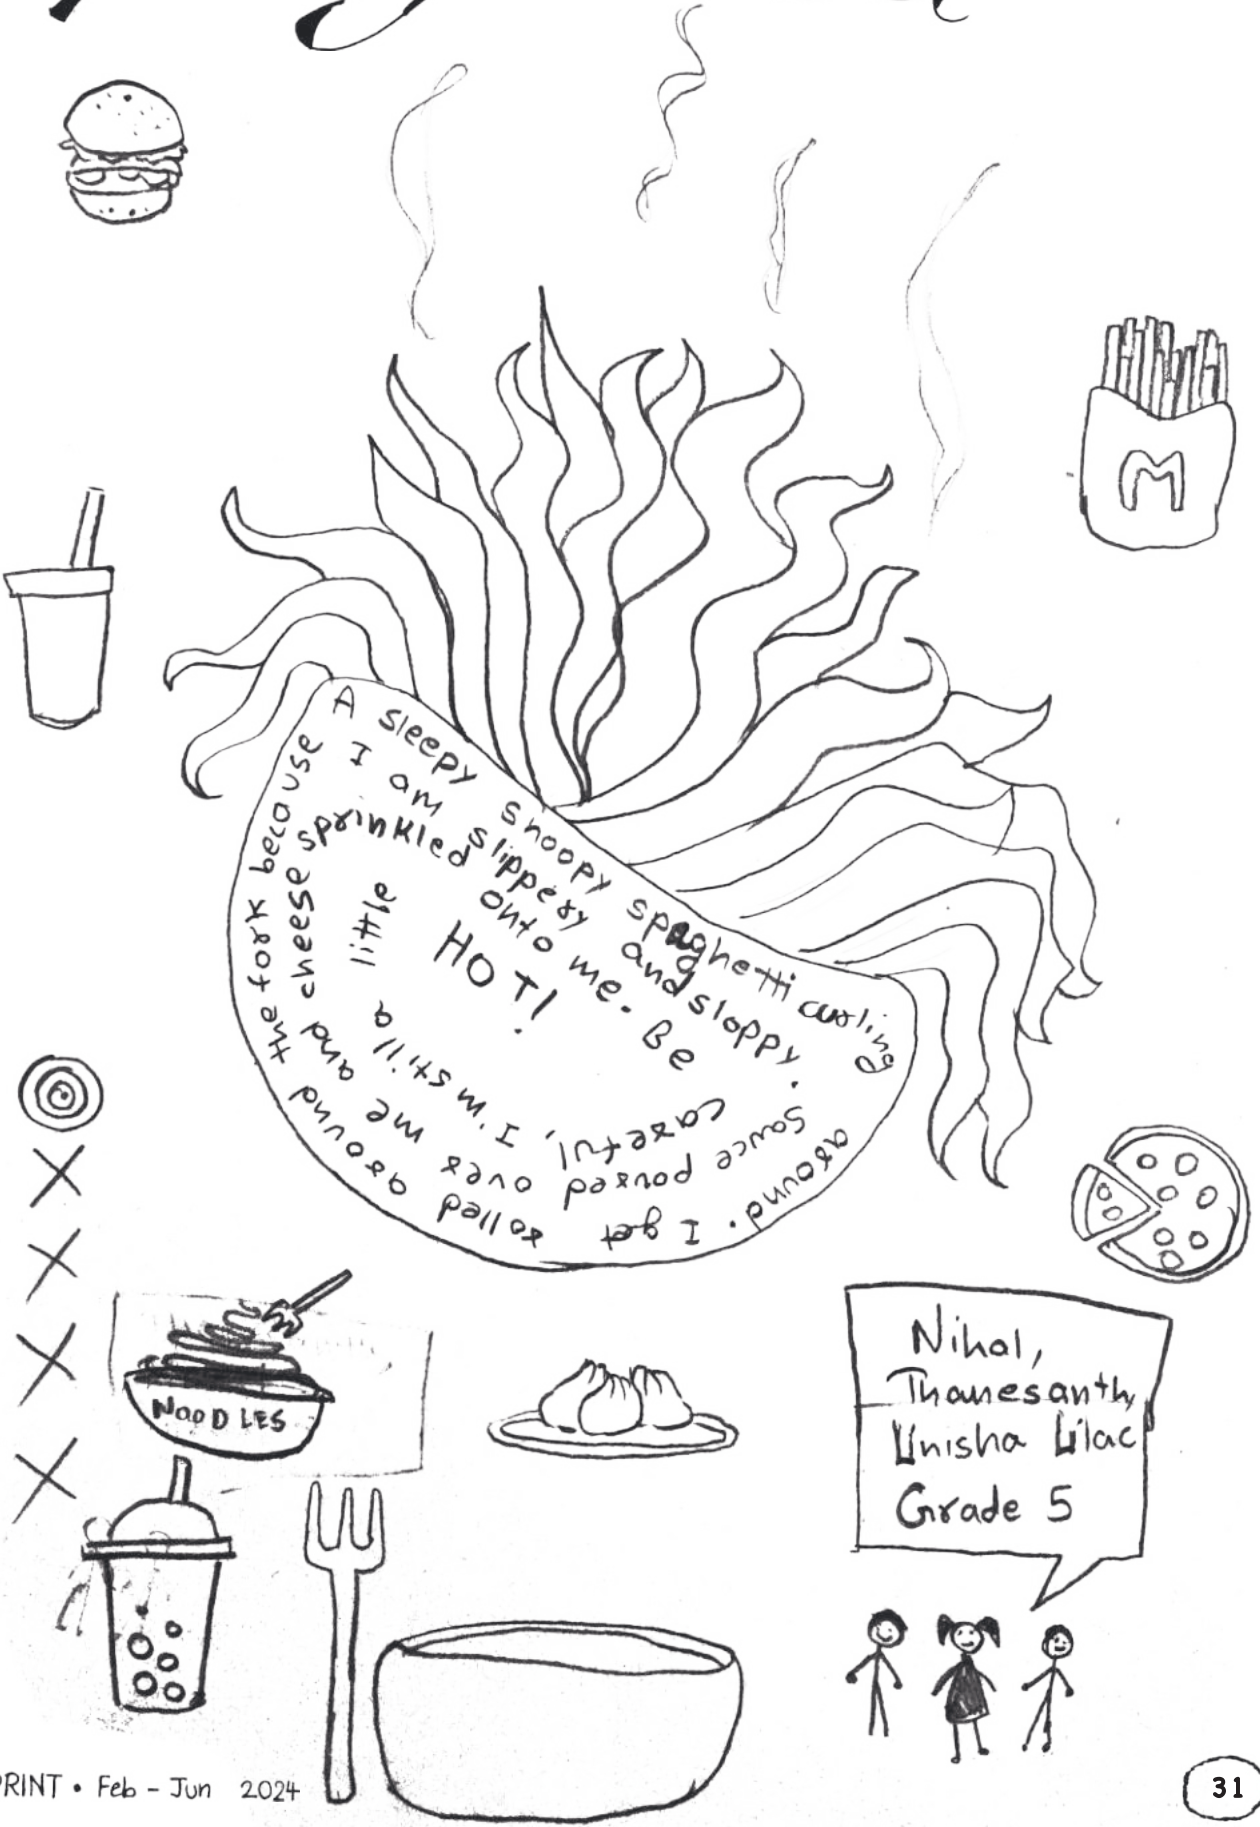 A sleepy snoopy spaghetti curling
around. I get rolled around the fork because
I am slippery and sloppy.
Sauce poured over me and cheese sprinkled onto me. Be
careful, I'm still a little
HOT!
M
NOODLES
Nihal,
Thanesanth,
Unisha Lilac
Grade 5
PRINT • Feb - Jun 2024
31